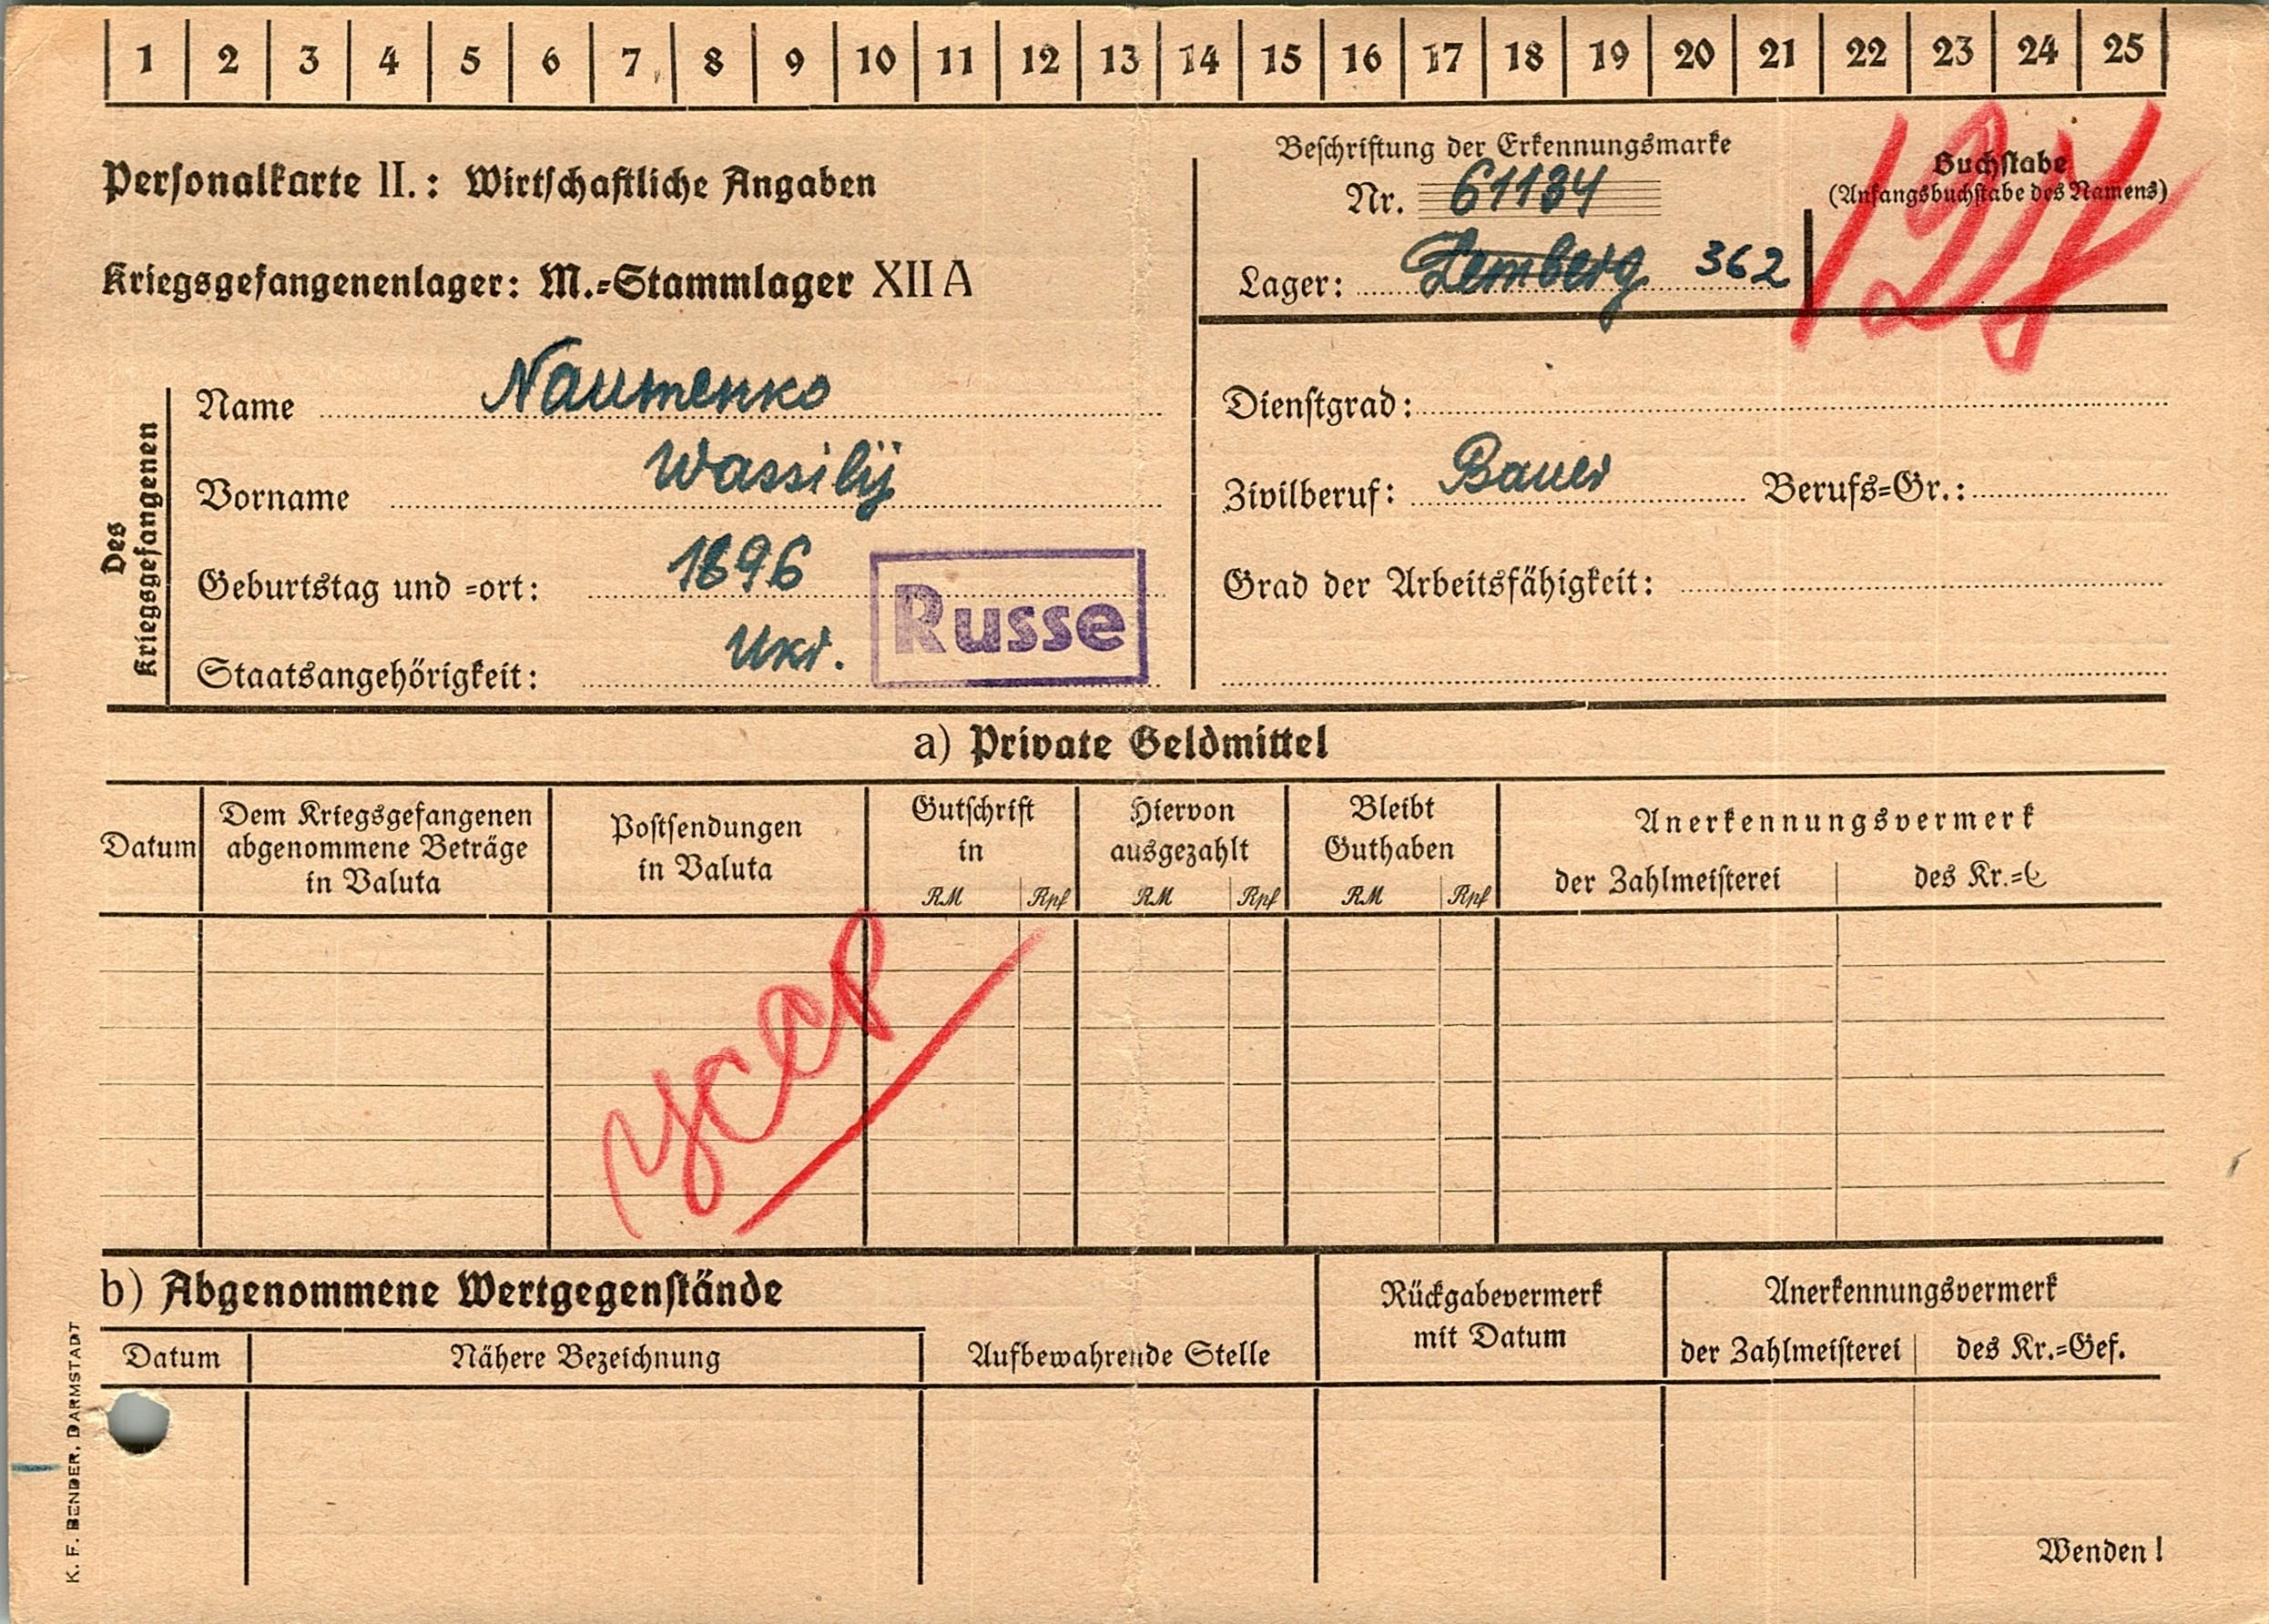 1 2 3 4 5 6 7 8 9 10 11 12 13 14 15 16 17 18 19 20 21 22 23 24 25
Personalkarte II.: Wirtschaftliche Angaben
Kriegsgefangenenlager: M.-Stammlager XII A
Beschriftung der Erkennungsmarke
Nr. 61134
Lager: Lemberg 362
Buchstabe
(Anfangsbuchstabe des Namens)
Des Kriegsgefangenen
Name Naumenko
Vorname Wassilij
Geburtstag und -ort: 1896
Staatsangehörigkeit: Ukr.
Russe
Dienstgrad:
Zivilberuf: Bauer Berufs-Gr.:
Grad der Arbeitsfähigkeit:
a) Private Geldmittel
Datum
Dem Kriegsgefangenen
abgenommene Beträge
in Valuta
Postsendungen
in Valuta
Gutschrift
in
RM Rpf
Hiervon
ausgezahlt
RM Rpf
Bleibt
Guthaben
RM Rpf
Anerkennungsvermerk
der Zahlmeisterei des Kr.=G
УССР
b) Abgenommene Wertgegenstände
Datum Nähere Bezeichnung Aufbewahrende Stelle
Rückgabevermerk
mit Datum
Anerkennungsvermerk
der Zahlmeisterei des Kr.=Gef.
Wenden!
K. F. BENDER, DARMSTADT